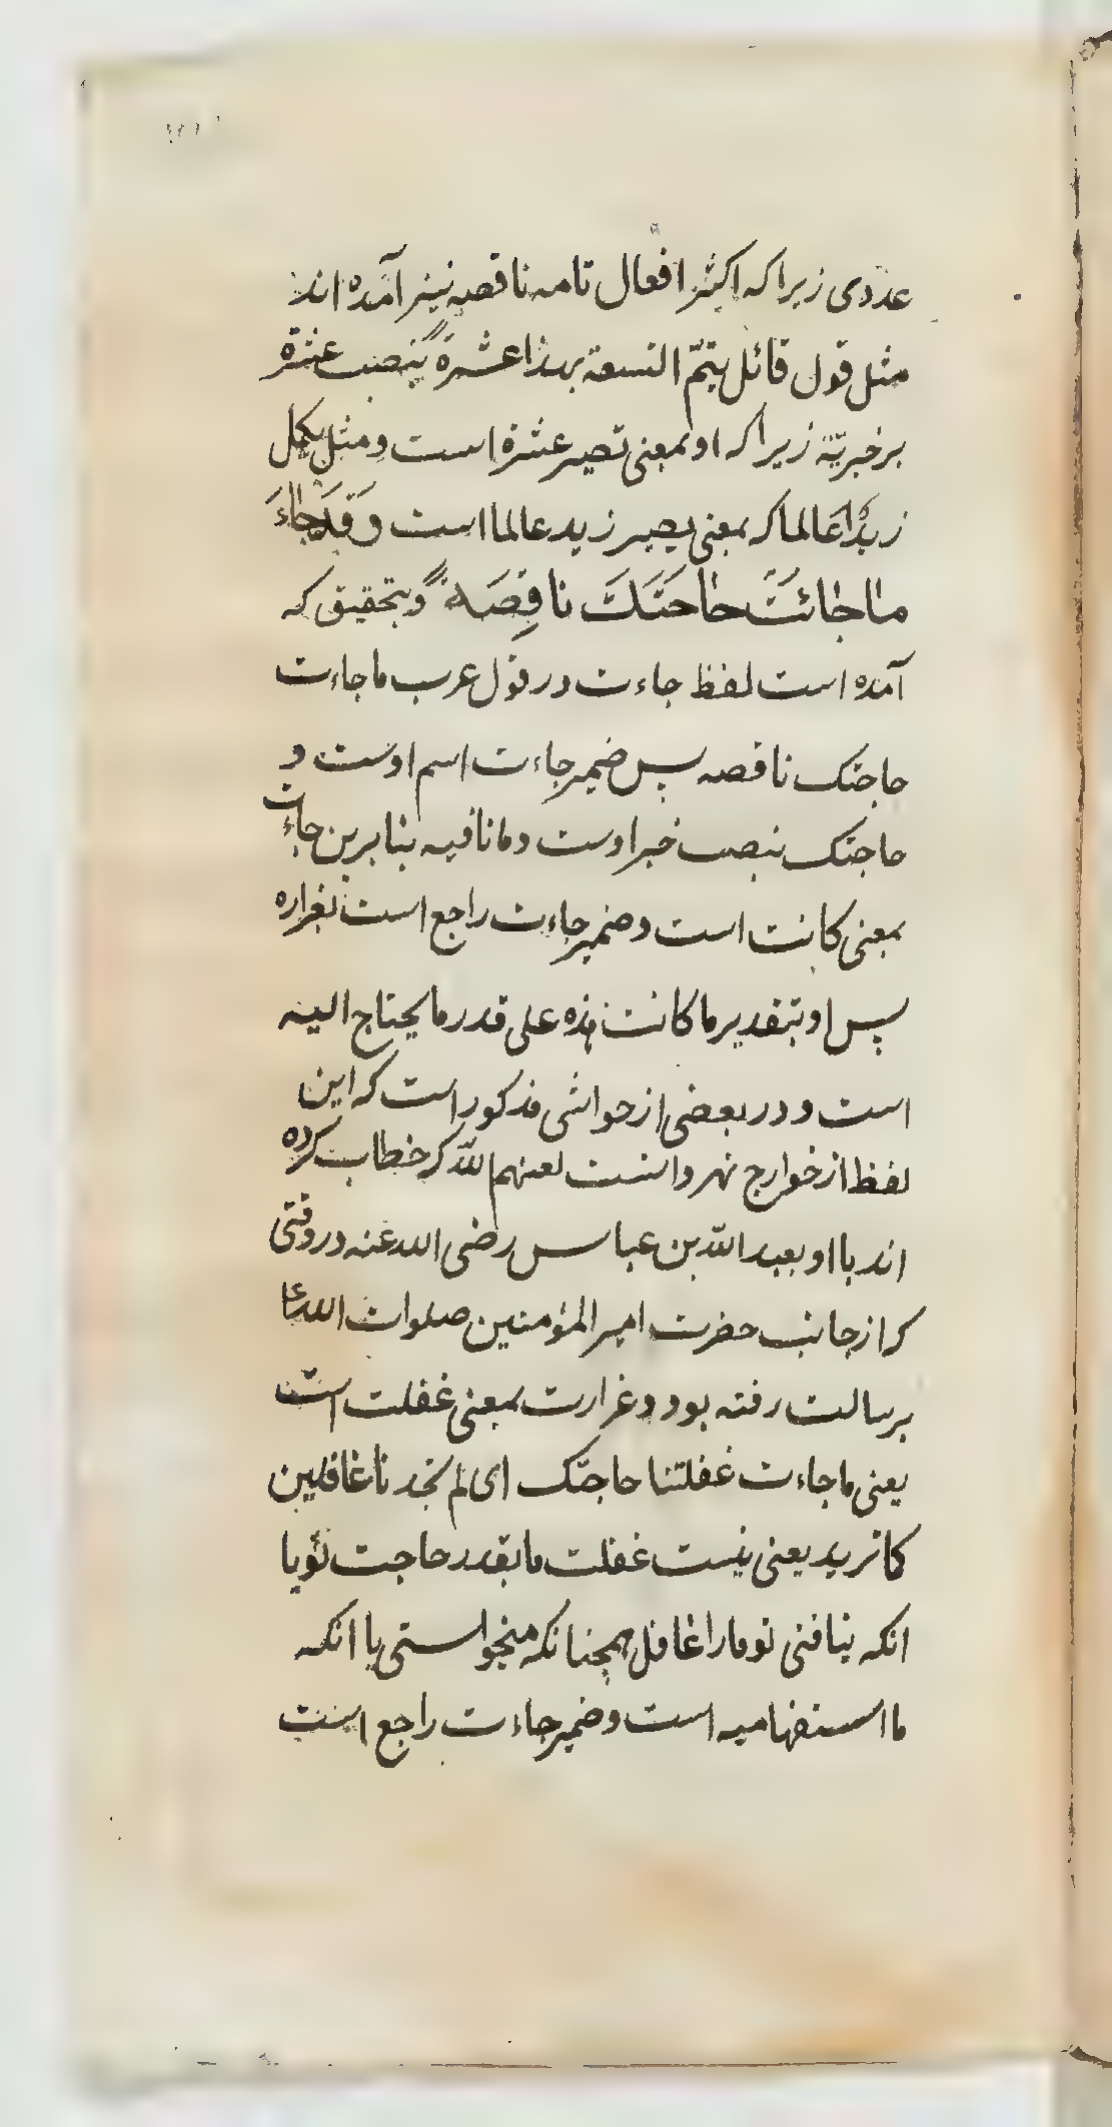 عددی زیرا که اکثر افعال تامه ناقصه نیز آمده اند
مثل قول قائل یتمّ التسعة بهذا عشرةً بنصب عشرة
بر خبریّة زیرا که او بمعنی تصیر عشرة است و مثل یکمل
زیدٌ عَالما که بمعنی یصیر زید عالما است وَ قَدجَاءَ
ما جائَتْ حاجَتَكَ ناقِصَةً و بتحقیق که
آمده است لفظ جاءت در قول عرب ما جاءت
حاجتک ناقصه پس ضمیر جاءت اسم اوست و
حاجتک بنصب خبر اوست و ما نافیه بنا برین جاءت
بمعنی کانت است و ضمیر جاءت راجع است بغراره
پس او بتقدیر ما کانت هذه علی قدر ما یحتاج الیه
است و در بعضی از حواشی مذکور است که این
لفظ از خوارج نهروانست لعنهم اللّه که خطاب کرده
اند با او بعبد اللّه بن عباس رضی الله عنه در وقتی
که از جانب حضرت امیر المؤمنین صلوات الله ع
برسالت رفته بود و غرارت بمعنی غفلت است
یعنی ما جاءت غفلتنا حاجتک ای لم تجدنا غافلین
کما ترید یعنی نیست غفلت ما بقدر حاجت تو یا
انکه نیافتی تو ما را غافل همچنانکه میخواستی یا انکه
ما استفهامیه است و ضمیر جاءت راجع است